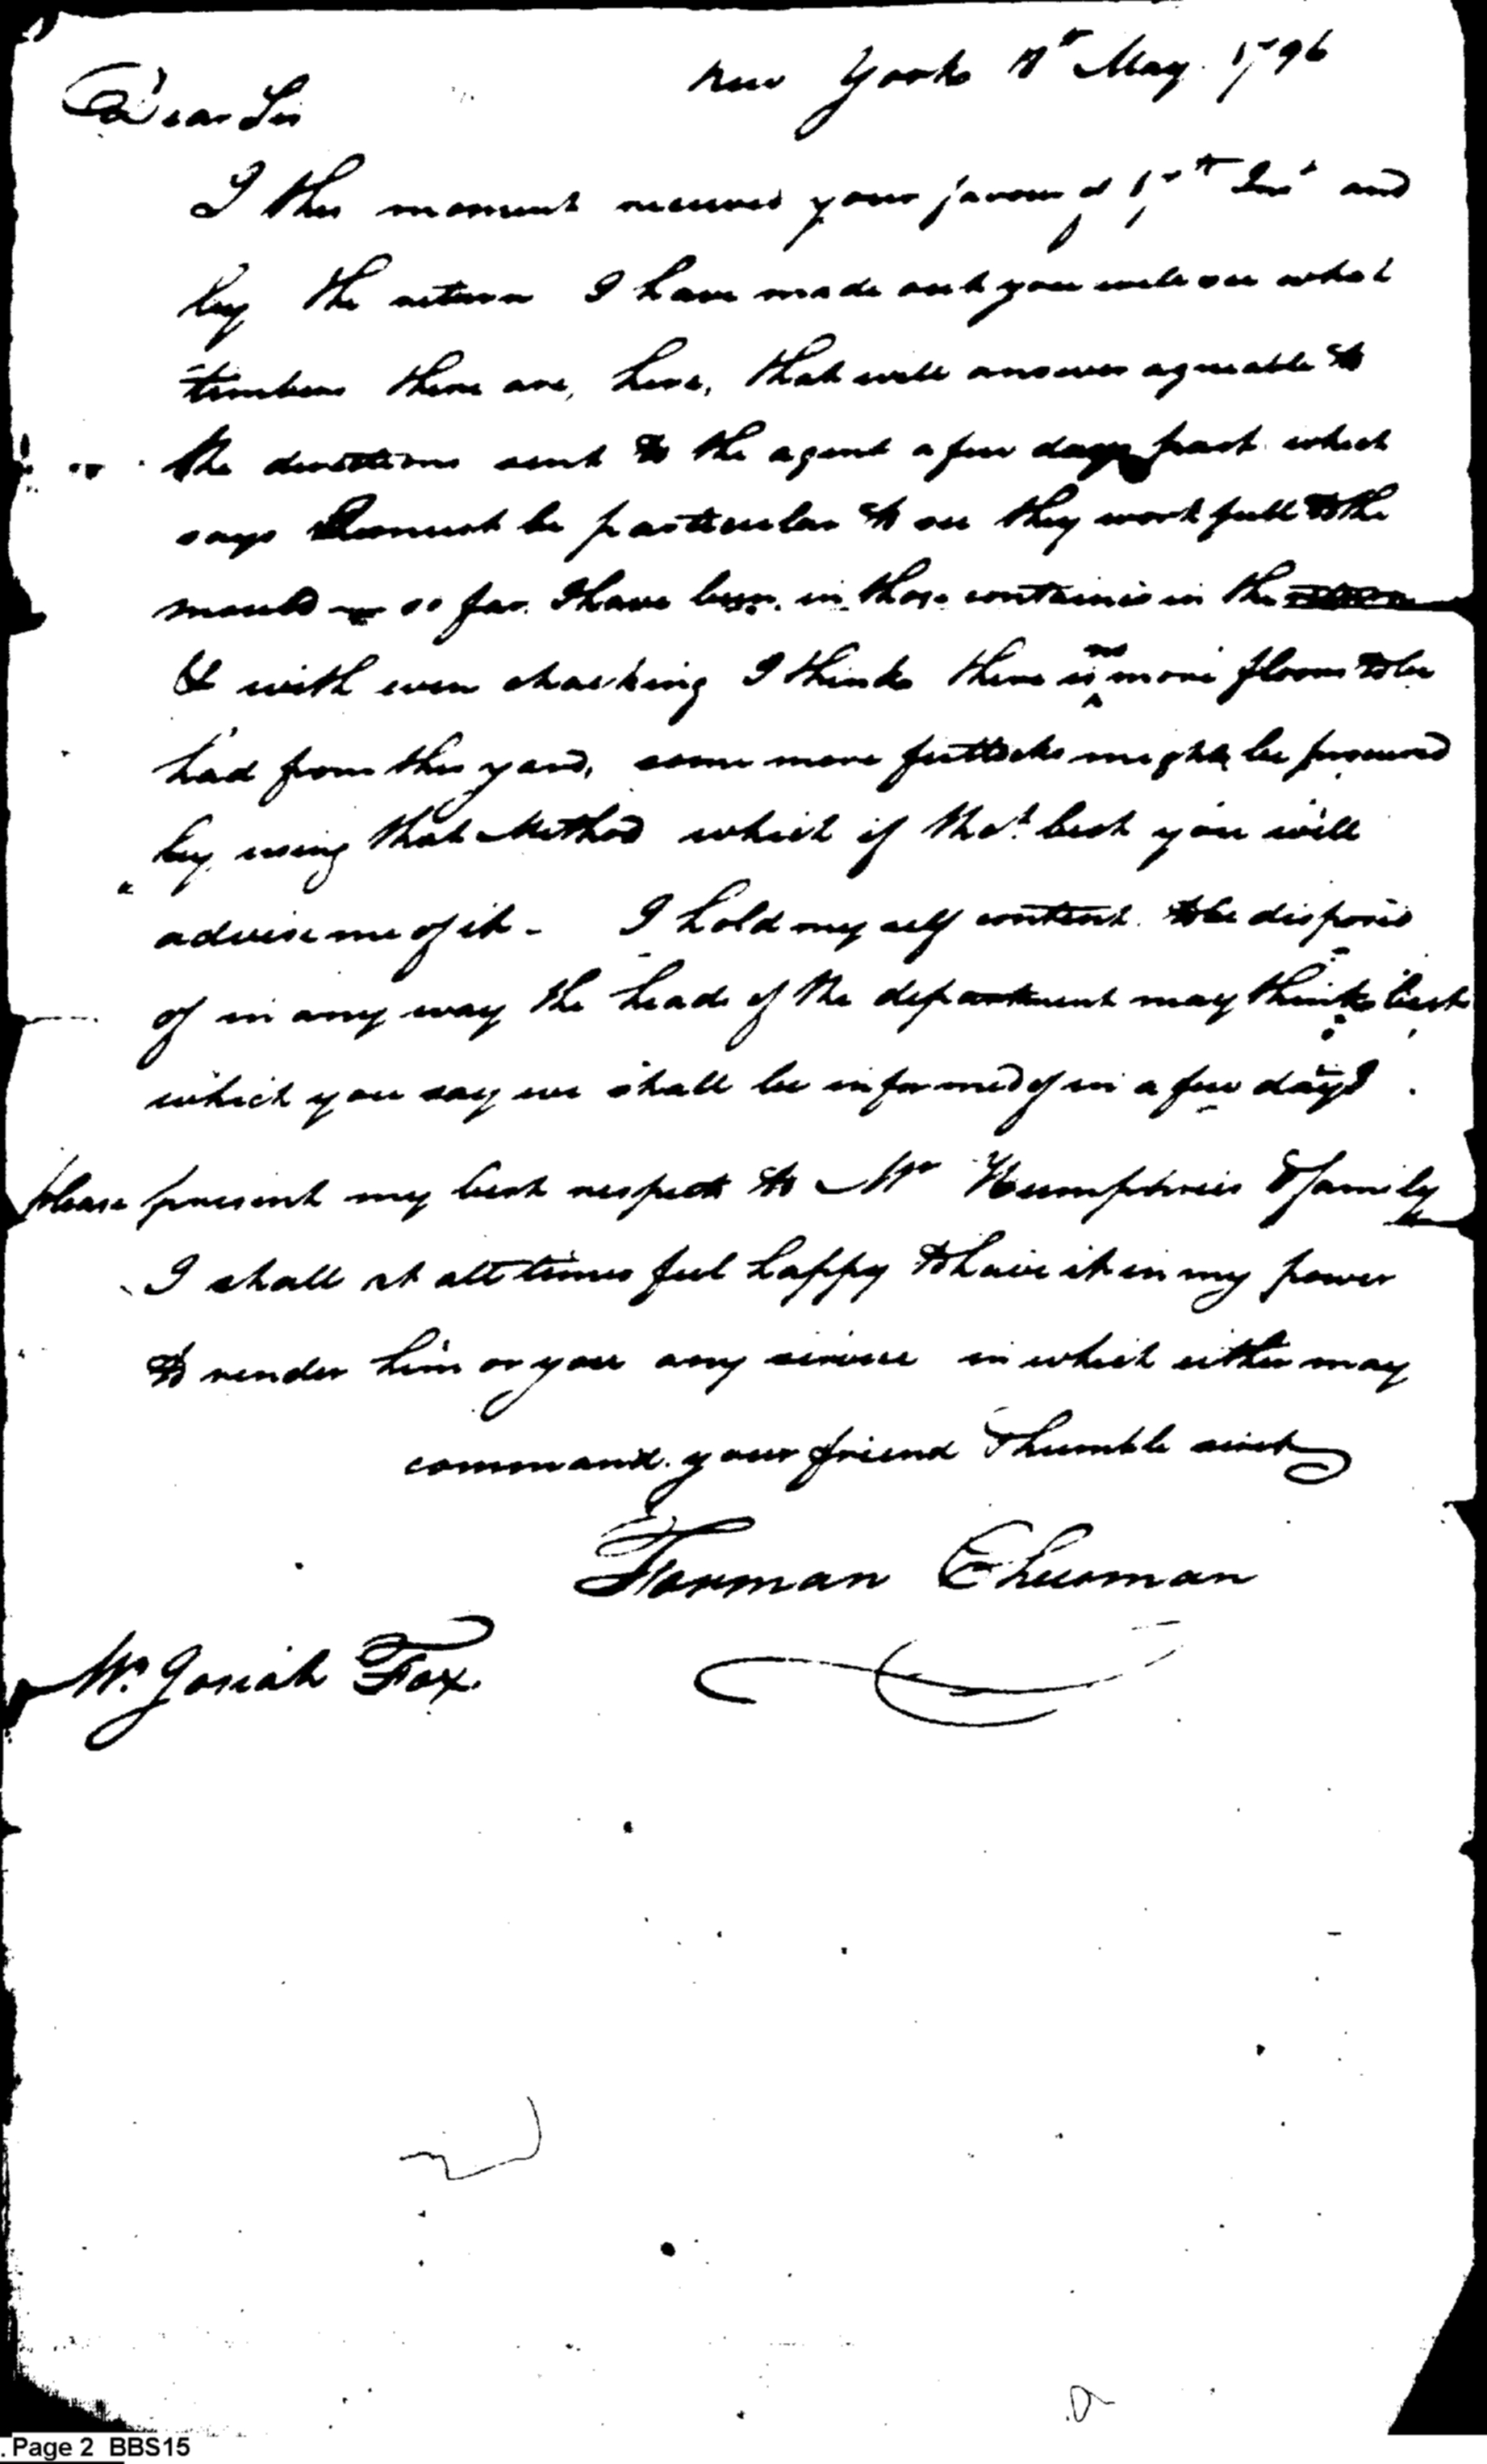 New York 18th May. 1796
Dear Sir
I this moment received your favour of 17th Inst and
by the return I have made out you will see what
timbers there are, here, that will answer agreeable to
the directions sent to the agent a few days past which
says I must be particular to see they work full to the
mould so far I have been in those contained in the
& with even chacking I think there is no more floors to be
had from this yard, some more futtocks might be procured
by using that Method which if that best you will
advise me of it - I hold my self content to be disposed
of in any way the heads of the department may think best
which you say we shall be informed of in a few days
please present my best respects to Mr Humphries & family
I shall at all times feel happy to have it in my power
to render him or you any service in which either may
command. your friend & humble servt
Forman Cheesman
Mr. Josiah Fox.
. Page 2 BBS15